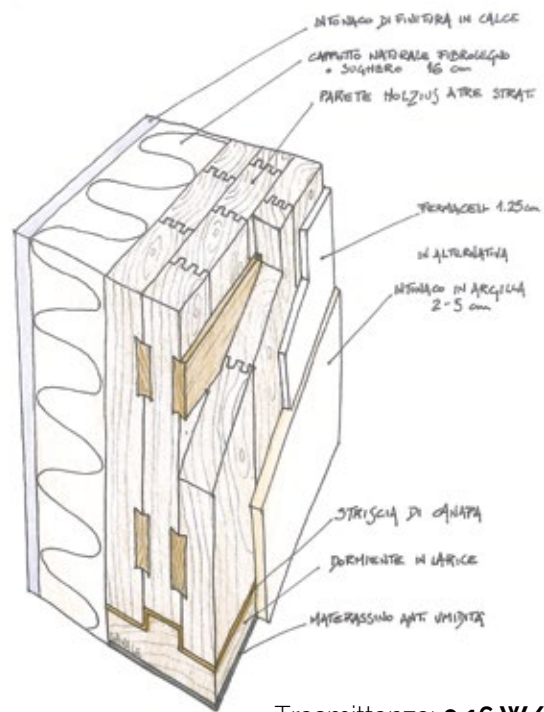 INTONACO DI FINITURA IN CALCE
CAPPOTTO NATURALE FIBROLEGNO
o SUGHERO 16 cm
PARETE HOLZIUS A TRE STRATI
FERMACELL 1.25 cm
IN ALTERNATIVA
INTONACO IN ARGILLA
2-5 cm
STRISCIA DI CANAPA
DORMIENTE IN LARICE
MATERASSINO ANTI UMIDITÀ